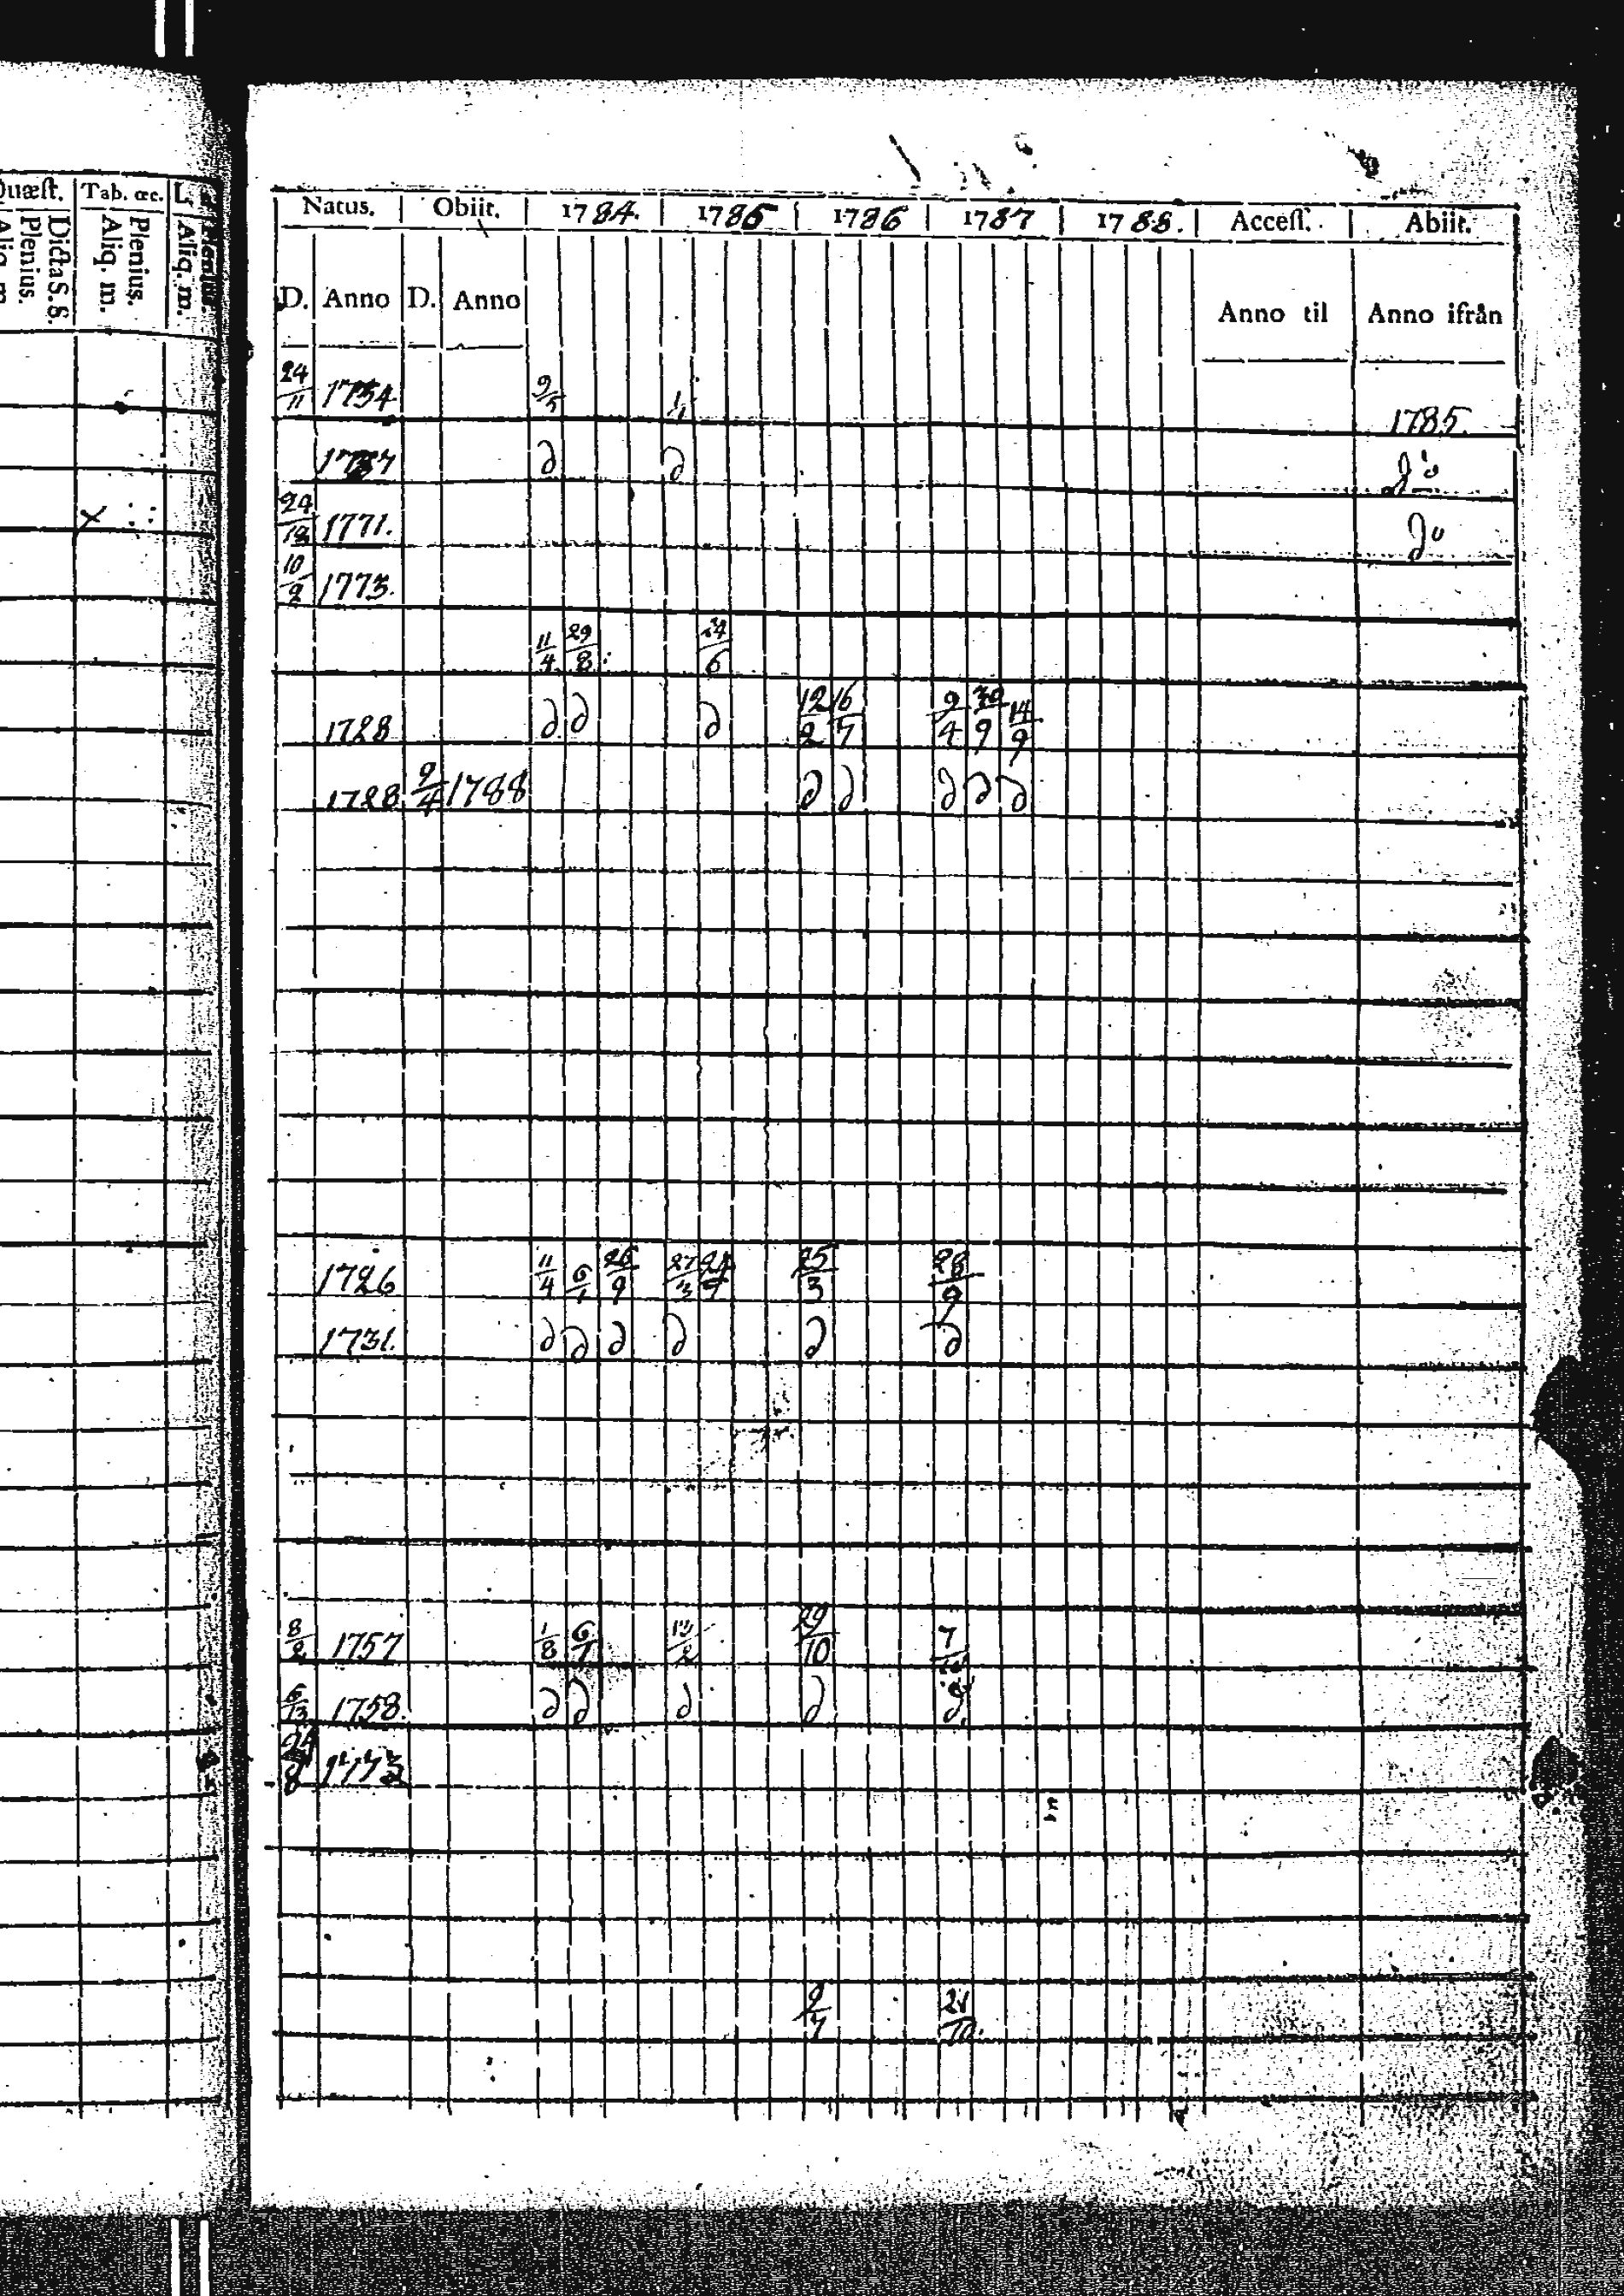 Quæst. Tab. œc. L.
Dicta S. S.
Plenius.
Aliq. m.
Plenius.
Aliq. m.
Plenius.
Aliq. m.
Natus. Obiit. 1784. 1785 1786 1787 1788. Access. Abiit.
D. Anno D. Anno Anno til Anno ifrån
24/11 1734 9/5 1/1 1785.
∂ ∂ do
24/12 1771. do
10/2 1773.
11/4 29/8 24/6
1728 ∂ ∂ ∂ 12/2 16/7 9/4 30/9 14/9
1728 9/4 1788 ∂ ∂ ∂ ∂ ∂
1726 11/4 6/7 26/9 27/3 25/3 28/9
1731. ∂ ∂ ∂ ∂ ∂ ∂
8/2 1757 1/8 6/7 29/10
6/13 1758. ∂ ∂ ∂ ∂ ∂
1773
9/7 21/10.